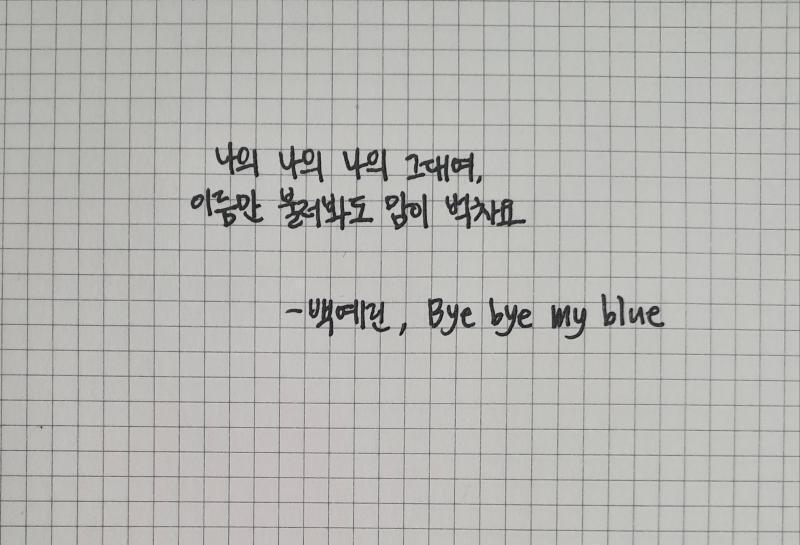 나의 나의 나의 그대여,
이름만 불러봐도 맘이 벅차요
-백예린, Bye bye my blue